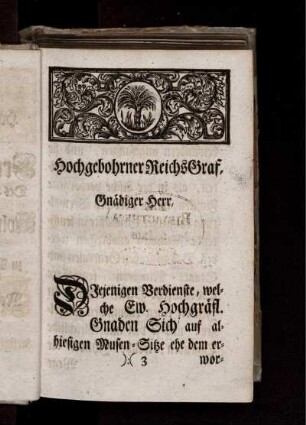 Hochgebohrner ReichsGraf,
Gnädiger Herr.
Diejenigen Verdienste, wel-
che Ew. Hochgräfl.
Gnaden Sich auf al-
hiesigen Musen-Sitze ehe dem er-
):( 3 wor-